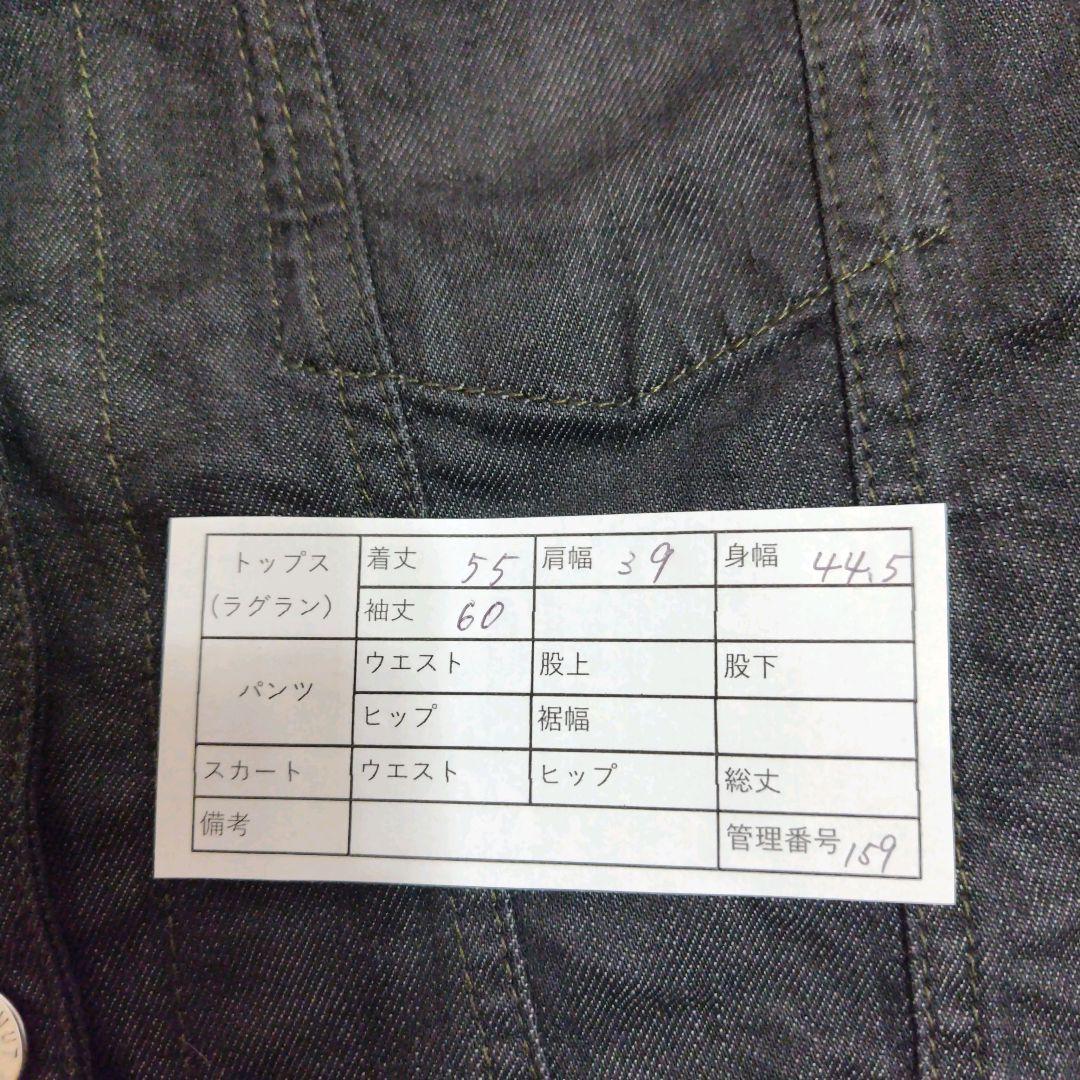 トップス
(ラグラン)
着丈 55
肩幅 39
身幅 44.5
袖丈 60
パンツ
ウエスト
股上
股下
ヒップ
裾幅
スカート
ウエスト
ヒップ
総丈
備考
管理番号 159